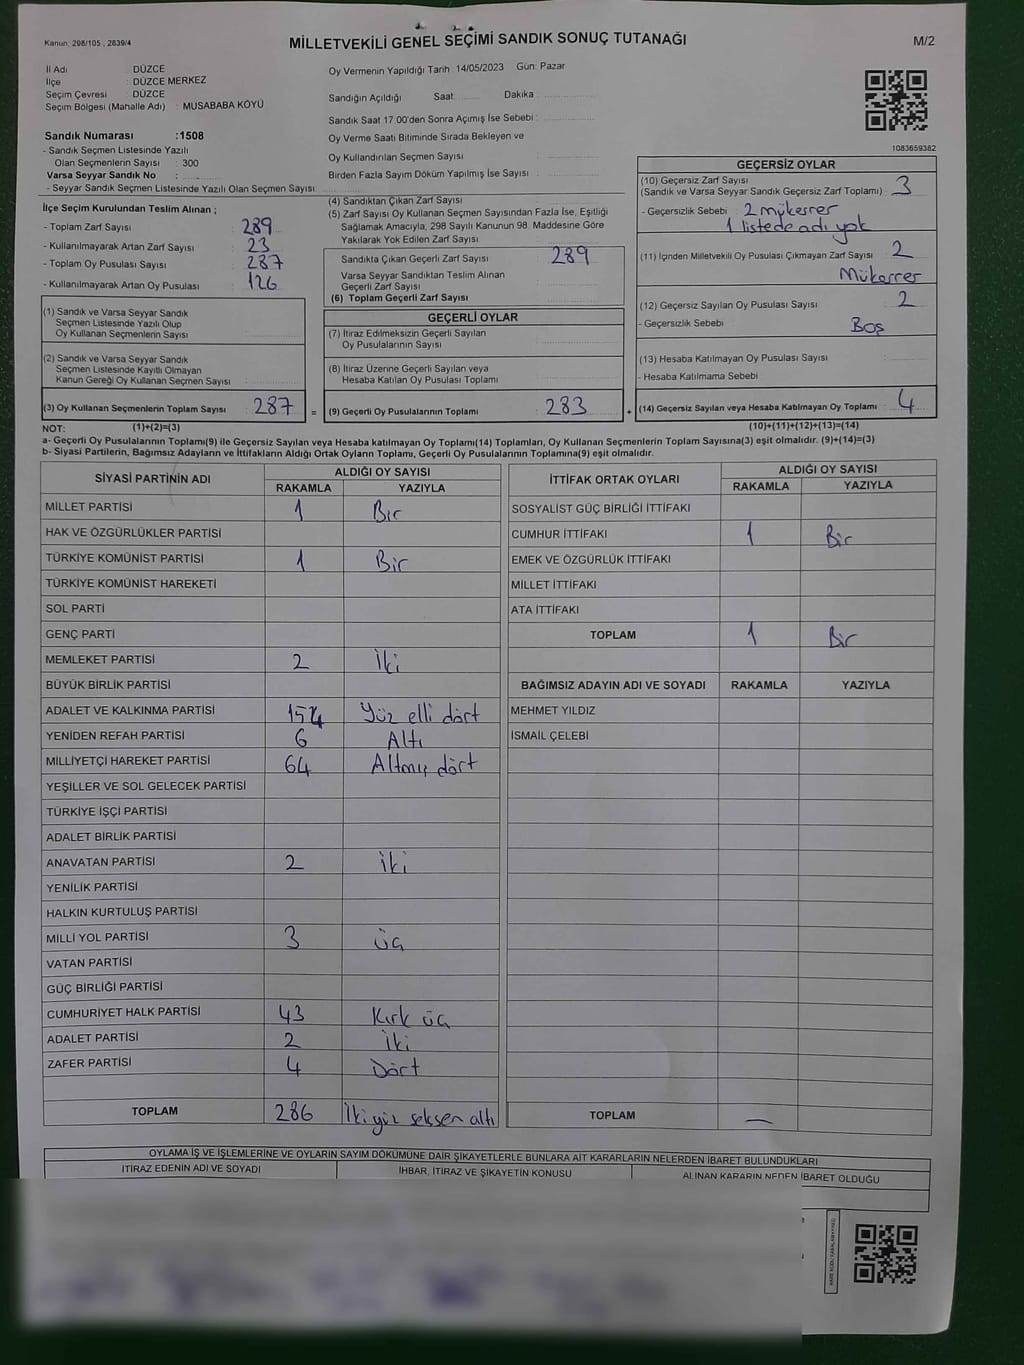 Kanun: 298/105 , 2839/4
MİLLETVEKİLİ GENEL SEÇİMİ SANDIK SONUÇ TUTANAĞI
M/2
İl Adı : DÜZCE
İlçe : DÜZCE MERKEZ
Seçim Çevresi : DÜZCE
Seçim Bölgesi (Mahalle Adı) : MUSABABA KÖYÜ
Sandık Numarası :1508
- Sandık Seçmen Listesinde Yazılı
Olan Seçmenlerin Sayısı : 300
Varsa Seyyar Sandık No :
- Seyyar Sandık Seçmen Listesinde Yazılı Olan Seçmen Sayısı:
İlçe Seçim Kurulundan Teslim Alınan ;
- Toplam Zarf Sayısı : 289
- Kullanılmayarak Artan Zarf Sayısı : 23
- Toplam Oy Pusulası Sayısı : 287
- Kullanılmayarak Artan Oy Pusulası : 126
(1) Sandık ve Varsa Seyyar Sandık
Seçmen Listesinde Yazılı Olup
Oy Kullanan Seçmenlerin Sayısı :
(2) Sandık ve Varsa Seyyar Sandık
Seçmen Listesinde Kayıtlı Olmayan
Kanun Gereği Oy Kullanan Seçmen Sayısı:
(3) Oy Kullanan Seçmenlerin Toplam Sayısı : 287
Oy Vermenin Yapıldığı Tarih :14/05/2023 Gün: Pazar
Sandığın Açıldığı Saat: Dakika :
Sandık Saat 17.00'den Sonra Açılmış İse Sebebi :
Oy Verme Saati Bitiminde Sırada Bekleyen ve
Oy Kullandırılan Seçmen Sayısı :
Birden Fazla Sayım Döküm Yapılmış İse Sayısı :
(4) Sandıktan Çıkan Zarf Sayısı :
(5) Zarf Sayısı Oy Kullanan Seçmen Sayısından Fazla İse, Eşitliği
Sağlamak Amacıyla, 298 Sayılı Kanunun 98. Maddesine Göre
Yakılarak Yok Edilen Zarf Sayısı :
Sandıkta Çıkan Geçerli Zarf Sayısı : 289
Varsa Seyyar Sandıktan Teslim Alınan
Geçerli Zarf Sayısı :
(6) Toplam Geçerli Zarf Sayısı :
GEÇERLİ OYLAR
(7) İtiraz Edilmeksizin Geçerli Sayılan
Oy Pusulalarının Sayısı :
(8) İtiraz Üzerine Geçerli Sayılan veya
Hesaba Katılan Oy Pusulası Toplamı :
= (9) Geçerli Oy Pusulalarının Toplamı : 283
1083659382
GEÇERSİZ OYLAR
(10) Geçersiz Zarf Sayısı
(Sandık ve Varsa Seyyar Sandık Geçersiz Zarf Toplamı) : 3
- Geçersizlik Sebebi : 2 mükerrer
1 listede adı yok
(11) İçinden Milletvekili Oy Pusulası Çıkmayan Zarf Sayısı : 2
Mükerrer
(12) Geçersiz Sayılan Oy Pusulası Sayısı : 2
- Geçersizlik Sebebi : Boş
(13) Hesaba Katılmayan Oy Pusulası Sayısı :
- Hesaba Katılmama Sebebi :
+ (14) Geçersiz Sayılan veya Hesaba Katılmayan Oy Toplamı : 4
NOT: (1)+(2)=(3) (10)+(11)+(12)+(13)=(14)
a- Geçerli Oy Pusulalarının Toplamı(9) ile Geçersiz Sayılan veya Hesaba katılmayan Oy Toplamı(14) Toplamları, Oy Kullanan Seçmenlerin Toplam Sayısına(3) eşit olmalıdır. (9)+(14)=(3)
b- Siyasi Partilerin, Bağımsız Adayların ve İttifakların Aldığı Ortak Oyların Toplamı, Geçerli Oy Pusulalarının Toplamına(9) eşit olmalıdır.
SİYASİ PARTİNİN ADI ALDIĞI OY SAYISI
RAKAMLA YAZIYLA
MİLLET PARTİSİ 1 Bir
HAK VE ÖZGÜRLÜKLER PARTİSİ
TÜRKİYE KOMÜNİST PARTİSİ 1 Bir
TÜRKİYE KOMÜNİST HAREKETİ
SOL PARTİ
GENÇ PARTİ
MEMLEKET PARTİSİ 2 İki
BÜYÜK BİRLİK PARTİSİ
ADALET VE KALKINMA PARTİSİ 154 Yüz elli dört
YENİDEN REFAH PARTİSİ 6 Altı
MİLLİYETÇİ HAREKET PARTİSİ 64 Altmış dört
YEŞİLLER VE SOL GELECEK PARTİSİ
TÜRKİYE İŞÇİ PARTİSİ
ADALET BİRLİK PARTİSİ
ANAVATAN PARTİSİ 2 İki
YENİLİK PARTİSİ
HALKIN KURTULUŞ PARTİSİ
MİLLİ YOL PARTİSİ 3 üç
VATAN PARTİSİ
GÜÇ BİRLİĞİ PARTİSİ
CUMHURİYET HALK PARTİSİ 43 Kırk üç
ADALET PARTİSİ 2 İki
ZAFER PARTİSİ 4 Dört
TOPLAM 286 İkiyüz seksen altı
İTTİFAK ORTAK OYLARI ALDIĞI OY SAYISI
RAKAMLA YAZIYLA
SOSYALİST GÜÇ BİRLİĞİ İTTİFAKI
CUMHUR İTTİFAKI 1 Bir
EMEK VE ÖZGÜRLÜK İTTİFAKI
MİLLET İTTİFAKI
ATA İTTİFAKI
TOPLAM 1 Bir
BAĞIMSIZ ADAYIN ADI VE SOYADI RAKAMLA YAZIYLA
MEHMET YILDIZ
İSMAİL ÇELEBİ
TOPLAM —
OYLAMA İŞ VE İŞLEMLERİNE VE OYLARIN SAYIM DÖKÜMÜNE DAİR ŞİKAYETLERLE BUNLARA AİT KARARLARIN NELERDEN İBARET BULUNDUKLARI
İTİRAZ EDENİN ADI VE SOYADI İHBAR, İTİRAZ VE ŞİKAYETİN KONUSU ALINAN KARARIN NEDEN İBARET OLDUĞU